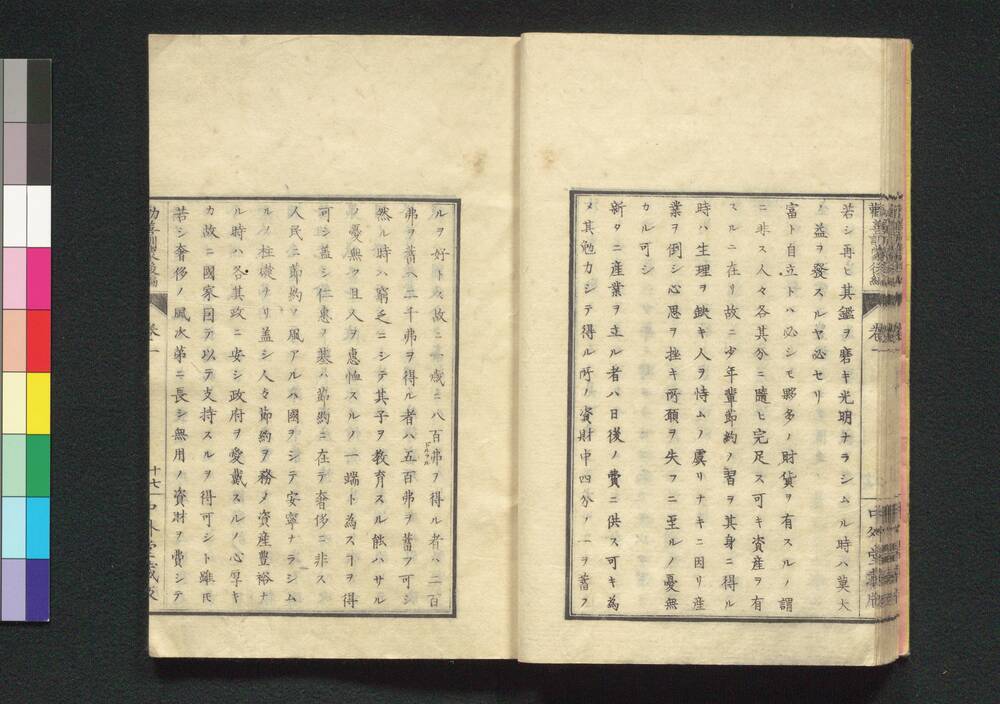 若シ再ヒ其鑑ヲ磨キ光明ナラシムル時ハ莫大
ノ益ヲ發スルヤ必セリ
富ト自立トハ必シモ夥多ノ財貨ヲ有スルノ謂
ニ非ス人々各其分ニ隨ヒ完足ス可キ資産ヲ有
スルニ在リ故ニ少年輩節約ノ習ヲ其身ニ得ル
時ハ生理ヲ缺キ人ヲ恃ムノ虞リナキニ因リ産
業ヲ倒シ心思ヲ挫キ所願ヲ失フニ至ルノ憂無
カル可シ
新タニ産業ヲ立ル者ハ日後ノ費ニ供ス可キ為
メ其勉力シテ得ル所ノ資財中四分ノ一ヲ蓄フ
ルヲ好トス故ニ一歳ニ八百弗ヲ得ル者ハ二百
ドルラル
弗ヲ蓄ヘ二千弗ヲ得ル者ハ五百弗ヲ蓄フ可シ
然ル時ハ窮乏ニシテ其子ヲ教育スル能ハサル
ノ憂無ク且人ヲ惠恤スルノ一端ト為スヿヲ得
可シ蓋シ仁惠ノ基ハ節約ニ在テ奢侈ニ非ス
人民ニ節約ノ風アルハ國ヲシテ安寧ナラシム
ルノ柱礎ナリ蓋シ人々節約ヲ務メ資産豊裕ナ
ル時ハ各其政ニ安シ政府ヲ愛戴スルノ心厚キ
カ故ニ國家因テ以テ支持スルヲ得可シト雖𪜈
若シ奢侈ノ風次第ニ長シ無用ノ資財ヲ費シテ
勸善訓蒙後編
卷一
十七
中外堂藏版